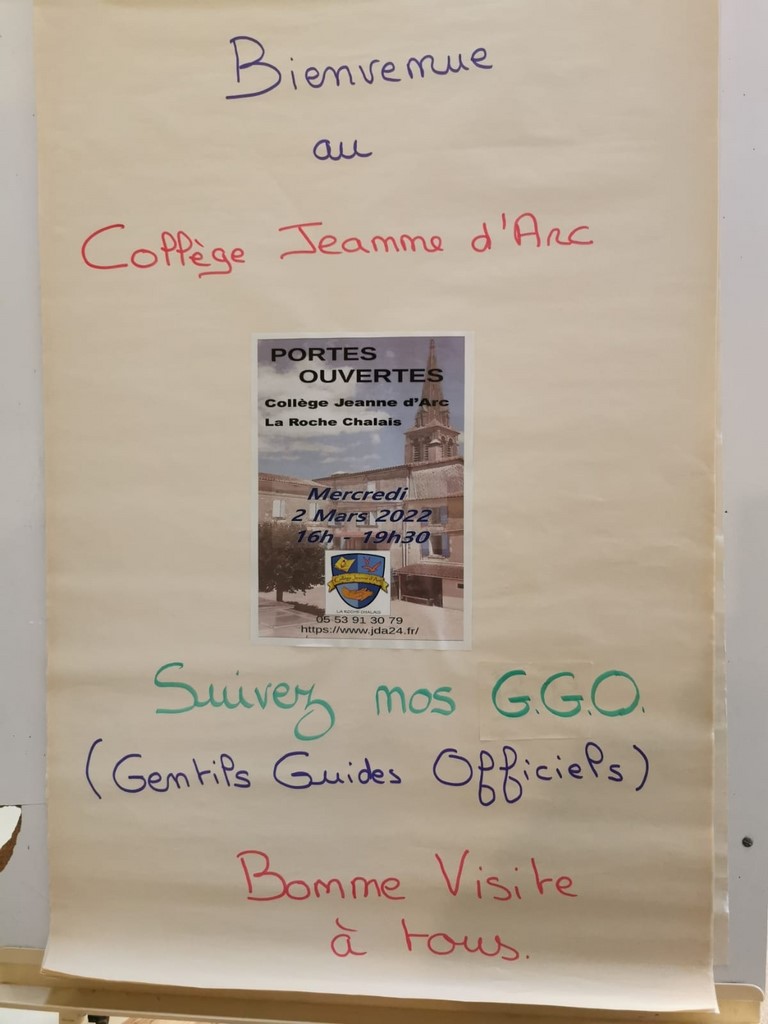 Bienvenue
au
Collège Jeanne d'Arc
PORTES
OUVERTES
Collège Jeanne d'Arc
La Roche Chalais
Mercredi
2 Mars 2022
16h - 19h30
Collège Jeanne d'Arc
LA ROCHE CHALAIS
05 53 91 30 79
https://www.jda24.fr/
Suivez nos G.G.O.
(Gentils Guides Officiels)
Bonne Visite
à tous.